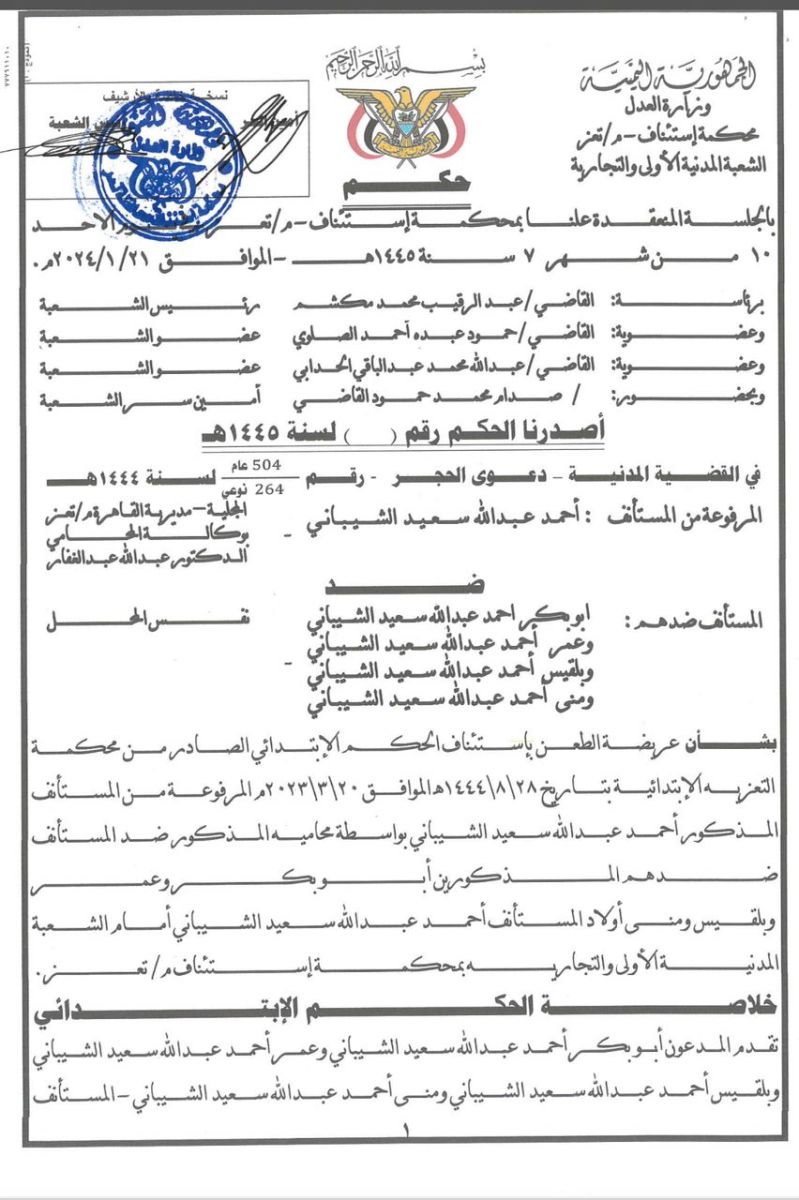 بسم الله الرحمن الرحيم
الجمهورية اليمنية
وزارة العدل
محكمة إستئناف - م/تعز
الشعبة المدنية الأولى والتجارية
نسخة
الشعبة
وزارة العدل
حكم
بالجلسة المنعقدة علنا بمحكمة إستئناف - م/تعز الاحد
١٠ من شهر ٧ سنة ١٤٤٥هـ - الموافق ٢٠٢٤/١/٢١م.
برئاسة: القاضي/عبدالرقيب محمد مكشم رئيس الشعبة
وعضوية: القاضي/حمود عبده أحمد الصلوي عضو الشعبة
وعضوية: القاضي/عبدالله محمد عبدالباقي الحدابي عضو الشعبة
وبحضور: / صدام محمد حمود القاضي أمين سر الشعبة
أصدرنا الحكم رقم ( ) لسنة ١٤٤٥هـ
في القضية المدنية - دعوى الحجر - رقم 504 عام / 264 نوعي لسنة ١٤٤٤هـ
المرفوعة من المستأنف : أحمد عبدالله سعيد الشيباني - المجلية - مديرية القاهرة م/تعز
بوكالة المحامي
الدكتور عبدالله عبدالغفار
ضد
المستأنف ضدهم: ابوبكر احمد عبدالله سعيد الشيباني نفس المحل
وعمر أحمد عبدالله سعيد الشيباني
وبلقيس أحمد عبدالله سعيد الشيباني -
ومنى أحمد عبدالله سعيد الشيباني
بشأن عريضة الطعن بإستئناف الحكم الإبتدائي الصادر من محكمة
التعزيه الإبتدائية بتاريخ ١٤٤٤/٨/٢٨هـ الموافق ٢٠٢٣/٣/٢٠م المرفوعة من المستأنف
المذكور أحمد عبدالله سعيد الشيباني بواسطة محاميه المذكور ضد المستأنف
ضدهم المذكورين أبوبكر وعمر
وبلقيس ومنى أولاد المستأنف أحمد عبدالله سعيد الشيباني أمام الشعبة
المدنية الأولى والتجاريه بمحكمة إستئناف م/تعز.
خلاصة الحكم الإبتدائي
تقدم المدعون أبوبكر أحمد عبدالله سعيد الشيباني وعمر أحمد عبدالله سعيد الشيباني
وبلقيس أحمد عبدالله سعيد الشيباني ومنى أحمد عبدالله سعيد الشيباني - المستأنف
١